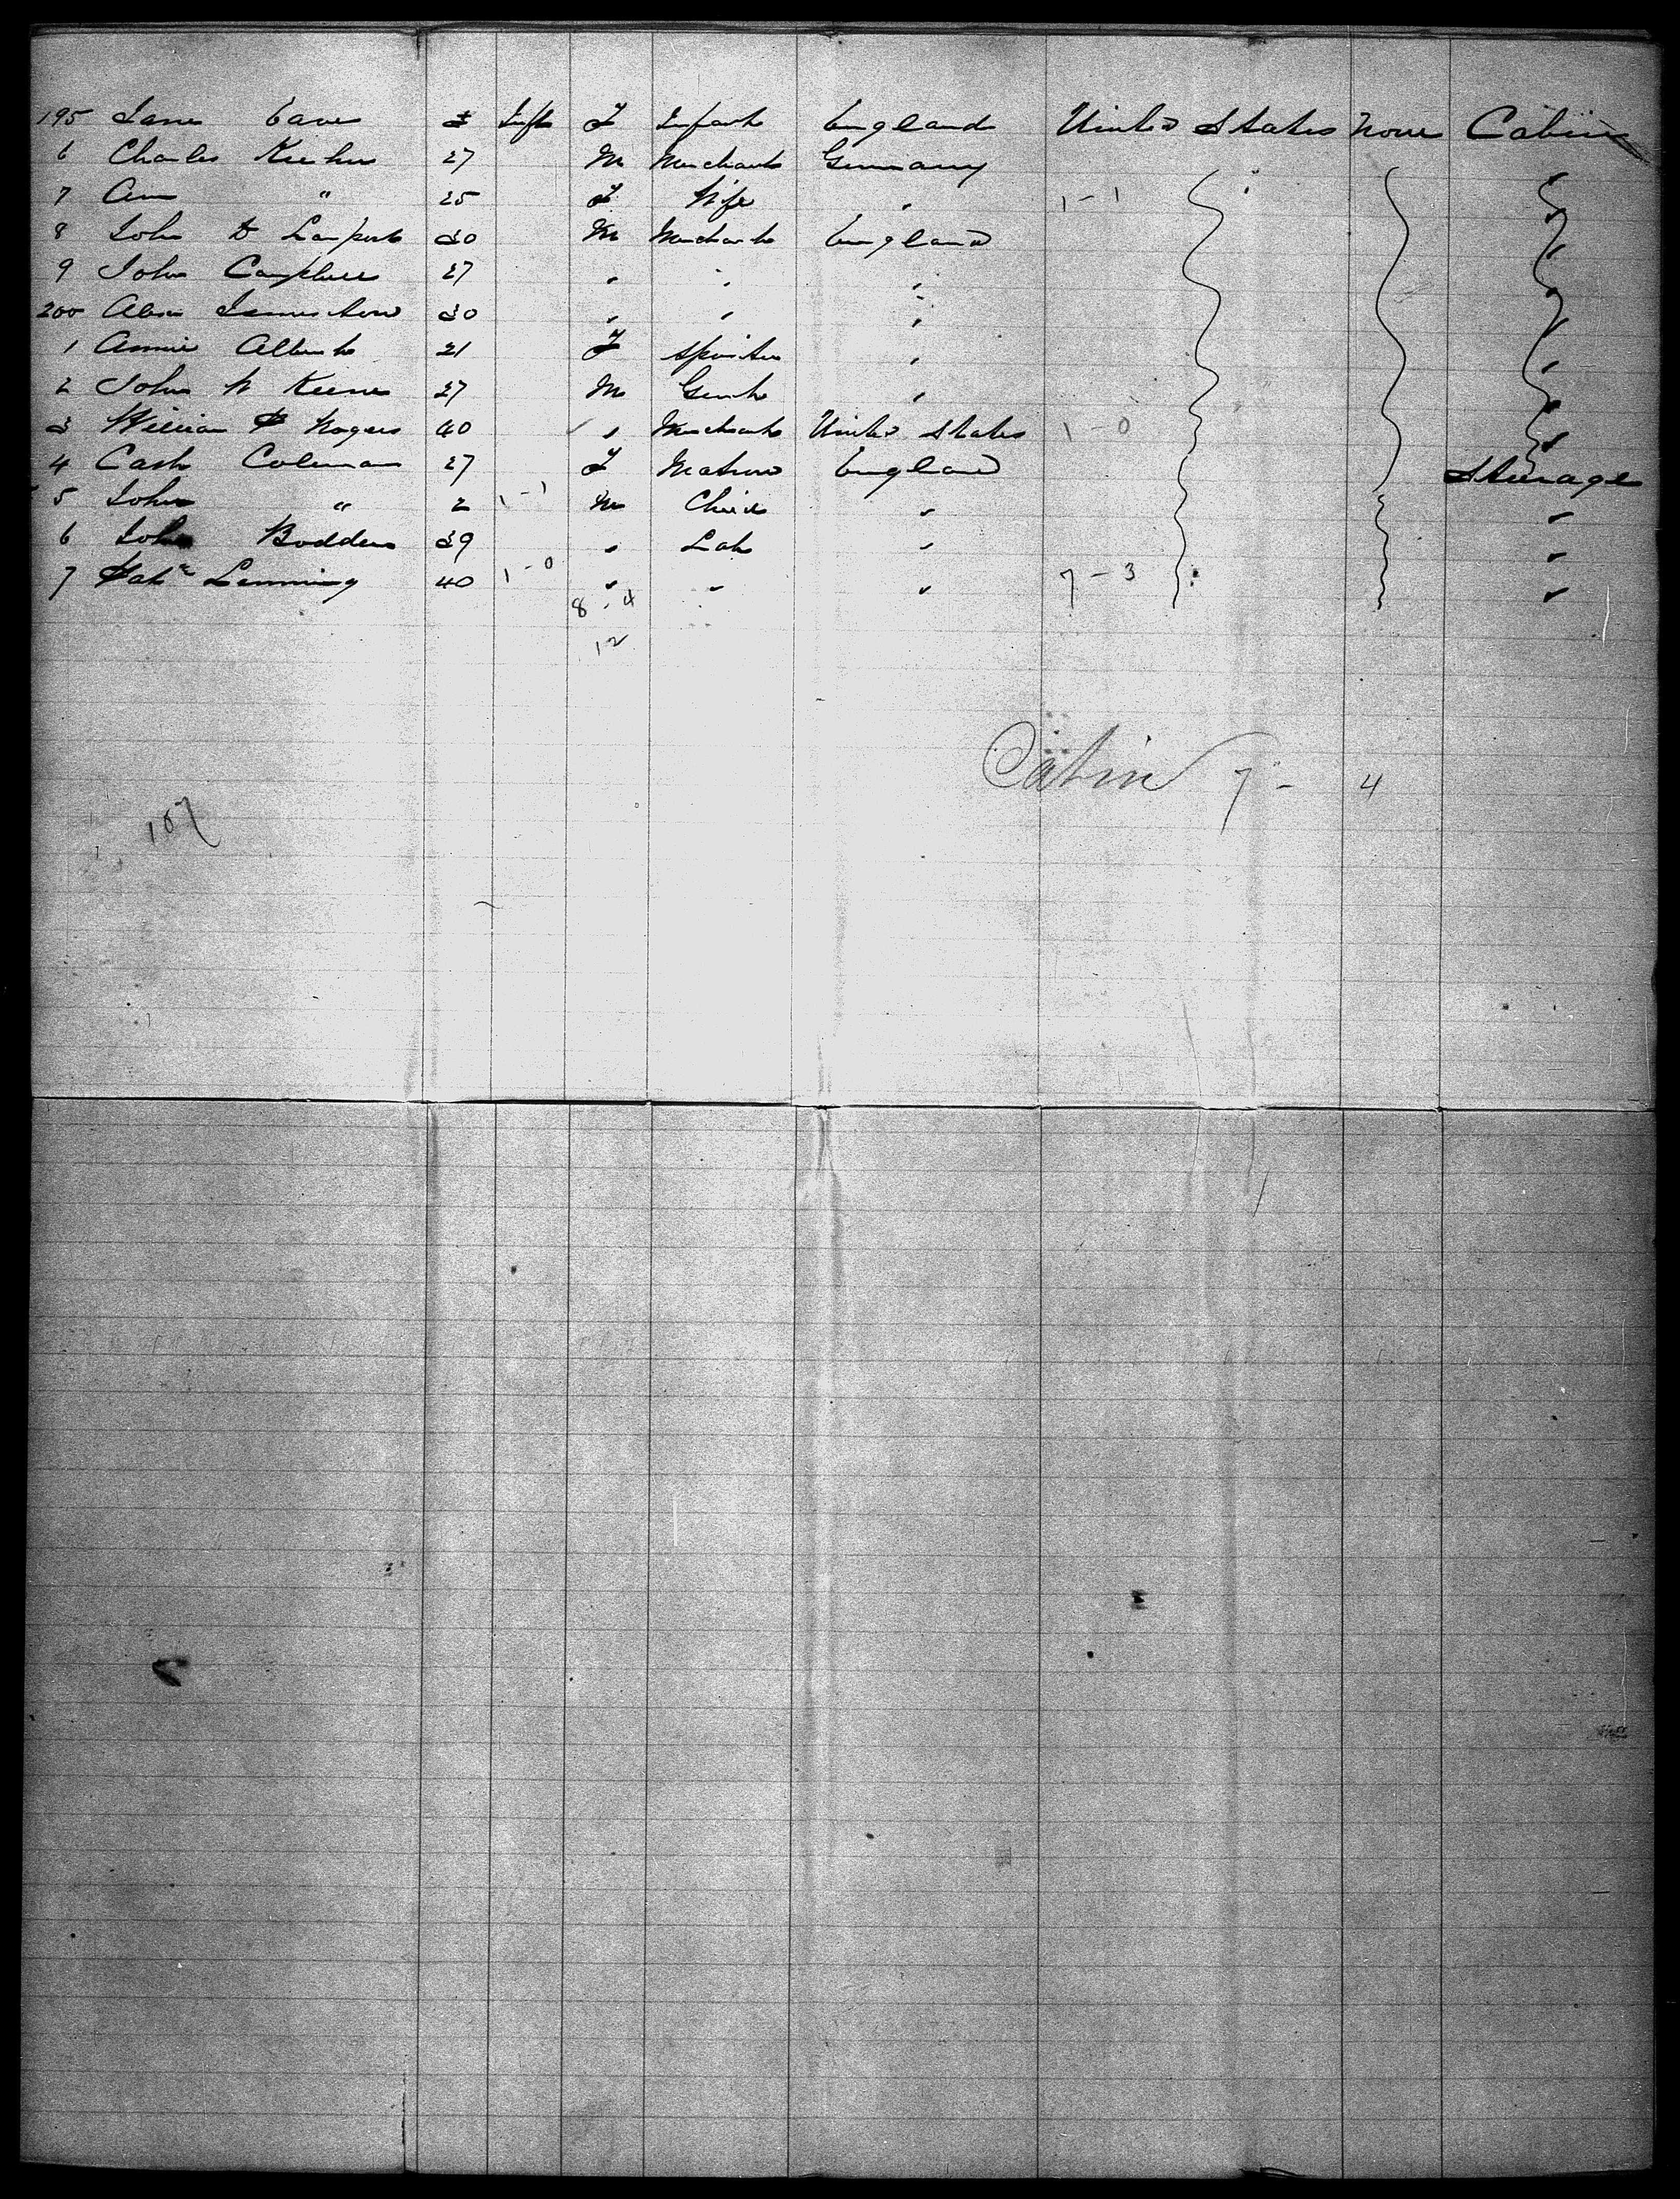 195 Jane Cave Inft F Infant England United States None Cabin
6 Charles 27 M Merchant Germany
7 Ann " 25 F Wife " 1-1
8 John D Lamport 30 M Merchant England "
9 John Campbell 27 " " " "
200 Jamieson 30 " " " "
1 Annie 21 F Spinster " "
2 John W Keene 27 M Gent " "
3 William Rogers 40 " Merchant United States 1-0 "
4 Cath Coleman 27 F Matron England Steerage
5 John " 2 1-1 M Child " "
6 John Bodden 39 " Lab " "
7 Patk Lemming 40 1-0 " " " 7-3 "
8-4
12
Cabin 7-4
107